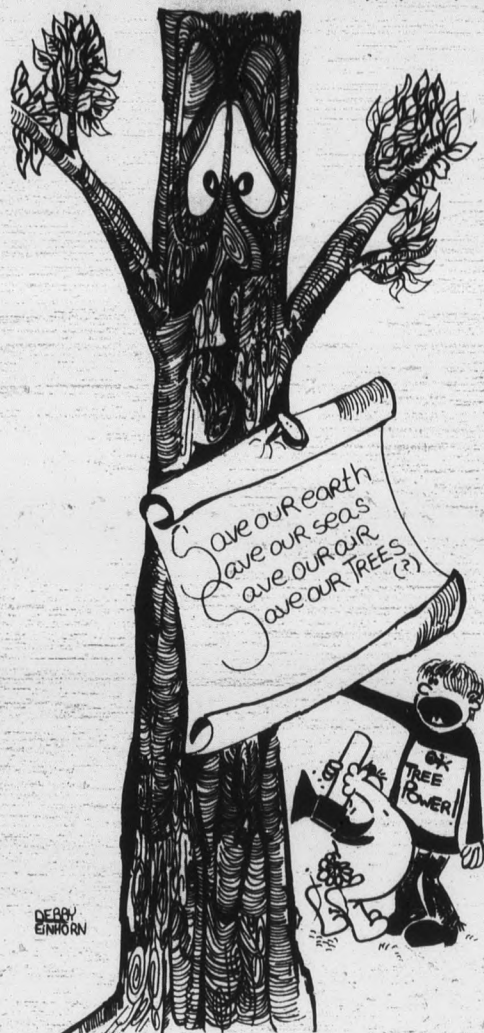 Save our earth
Save our seas
Save our air
Save our TREES
(?)
TREE
POWER!
DEBBY
EINHORN